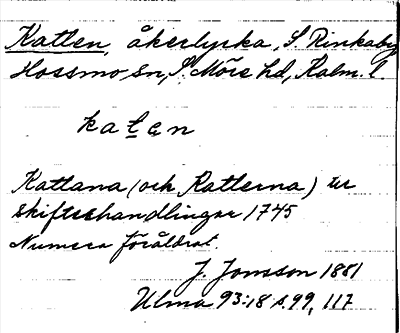 Katten, åkerlycka, S. Rinkaby
Hossmo sn, S. Möre hd, Kalm. l.
katen
Kattana (och Katterna) ur
skifteshandlingar 1745
Numera föråldrat.
J. Jonsson 1881
Ulma 93:18 s. 99, 117